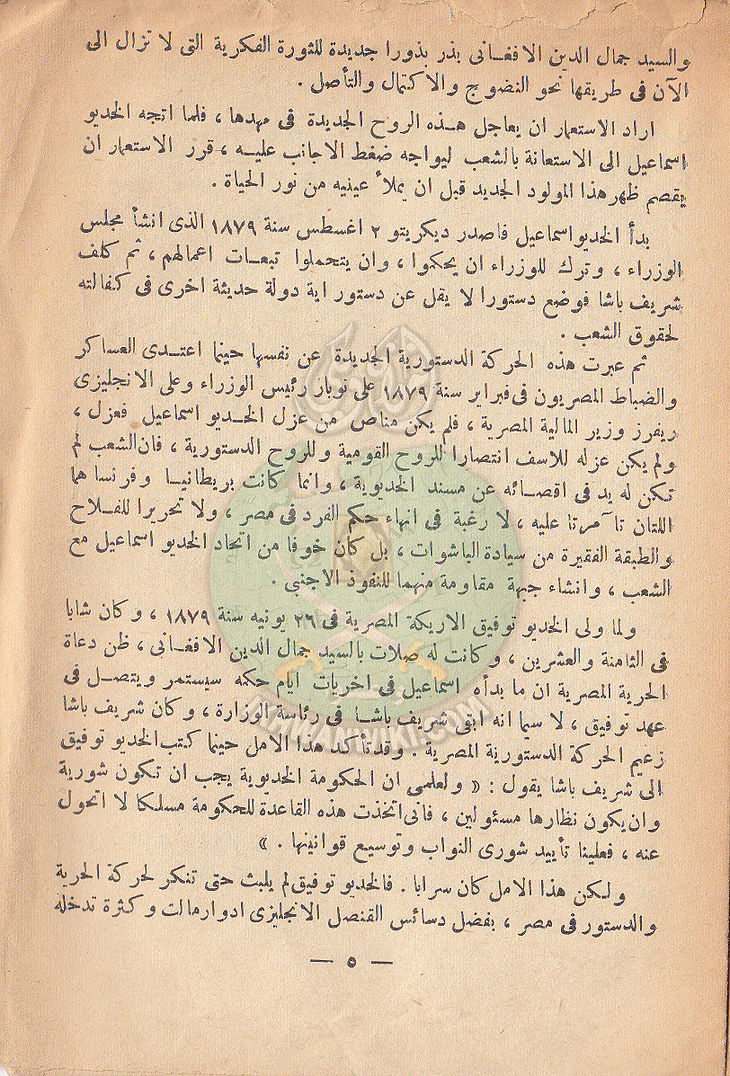 والسيد جمال الدين الافغانى بذر بذورا جديدة للثورة الفكرية التى لا تزال الى
الآن فى طريقها نحو النضوج والاكتمال والتأصل .
اراد الاستعمار ان يعاجل هذه الروح الجديدة فى مهدها ، فلما اتجه الخديو
اسماعيل الى الاستعانة بالشعب ليواجه ضغط الاجانب عليه ، قرر الاستعمار ان
يقصم ظهر هذا المولود الجديد قبل ان يملأ عينيه من نور الحياة .
بدأ الخديو اسماعيل فاصدر ديكريتو ٢ اغسطس سنة ١٨٧٩ الذى انشأ مجلس
الوزراء ، وترك للوزراء ان يحكموا ، وان يتحملوا تبعات اعمالهم ، ثم كلف
شريف باشا فوضع دستورا لا يقل عن دستور اية دولة حديثة اخرى فى كفالته
لحقوق الشعب .
ثم عبرت هذه الحركة الدستورية الجديدة عن نفسها حينما اعتدى العساكر
والضباط المصريون فى فبراير سنة ١٨٧٩ على نوبار رئيس الوزراء وعلى الانجليزى
ريفرز وزير المالية المصرية ، فلم يكن مناص من عزل الخديو اسماعيل فعزل ،
ولم يكن عزله للاسف انتصارا للروح القومية وللروح الدستورية ، فان الشعب لم
تكن له يد فى اقصائه عن مسند الخديوية ، وانما كانت بريطانيا وفرنسا هما
اللتان تآمرتا عليه ، لا رغبة فى انهاء حكم الفرد فى مصر ، ولا تحريرا للفلاح
والطبقة الفقيرة من سيادة الباشوات ، بل كان خوفا من اتحاد الخديو اسماعيل مع
الشعب ، وانشاء جبهة مقاومة منهما للنفوذ الاجنبى .
ولما ولى الخديو توفيق الاريكة المصرية فى ٢٦ يونيه سنة ١٨٧٩ ، وكان شابا
فى الثامنة والعشرين ، وكانت له صلات بالسيد جمال الدين الافغانى ، ظن دعاة
الحرية المصرية ان ما بدأه اسماعيل فى اخريات ايام حكمه سيستمر ويتصل فى
عهد توفيق ، لا سيما انه ابقى شريف باشا فى رئاسة الوزارة ، وكان شريف باشا
زعيم الحركة الدستورية المصرية . وقد تأكد هذا الامل حينما كتب الخديو توفيق
الى شريف باشا يقول : « ولعلمى ان الحكومة الخديوية يجب ان تكون شورية
وان يكون نظارها مسئولين ، فانى اتخذت هذه القاعدة للحكومة مسلكا لا اتحول
عنه ، فعلينا تأييد شورى النواب وتوسيع قوانينها . »
ولكن هذا الامل كان سرابا . فالخديو توفيق لم يلبث حتى تنكر لحركة الحرية
والدستور فى مصر ، بفضل دسائس القنصل الانجليزى ادوار مالت وكثرة تدخله
— ٥ —